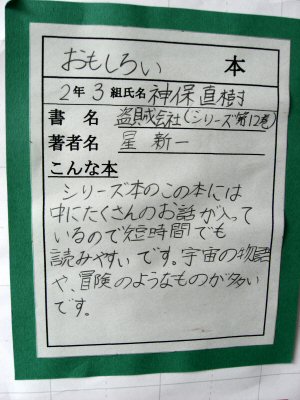 おもしろい 本
2年 3組氏名 神保直樹
書 名 盗賊会社(シリーズ第12巻)
著者名 星 新一
こんな本
シリーズ本のこの本には
中にたくさんのお話が入って
いるので短時間でも
読みやすいです。宇宙の物語
や、冒険のようなものが多い
です。